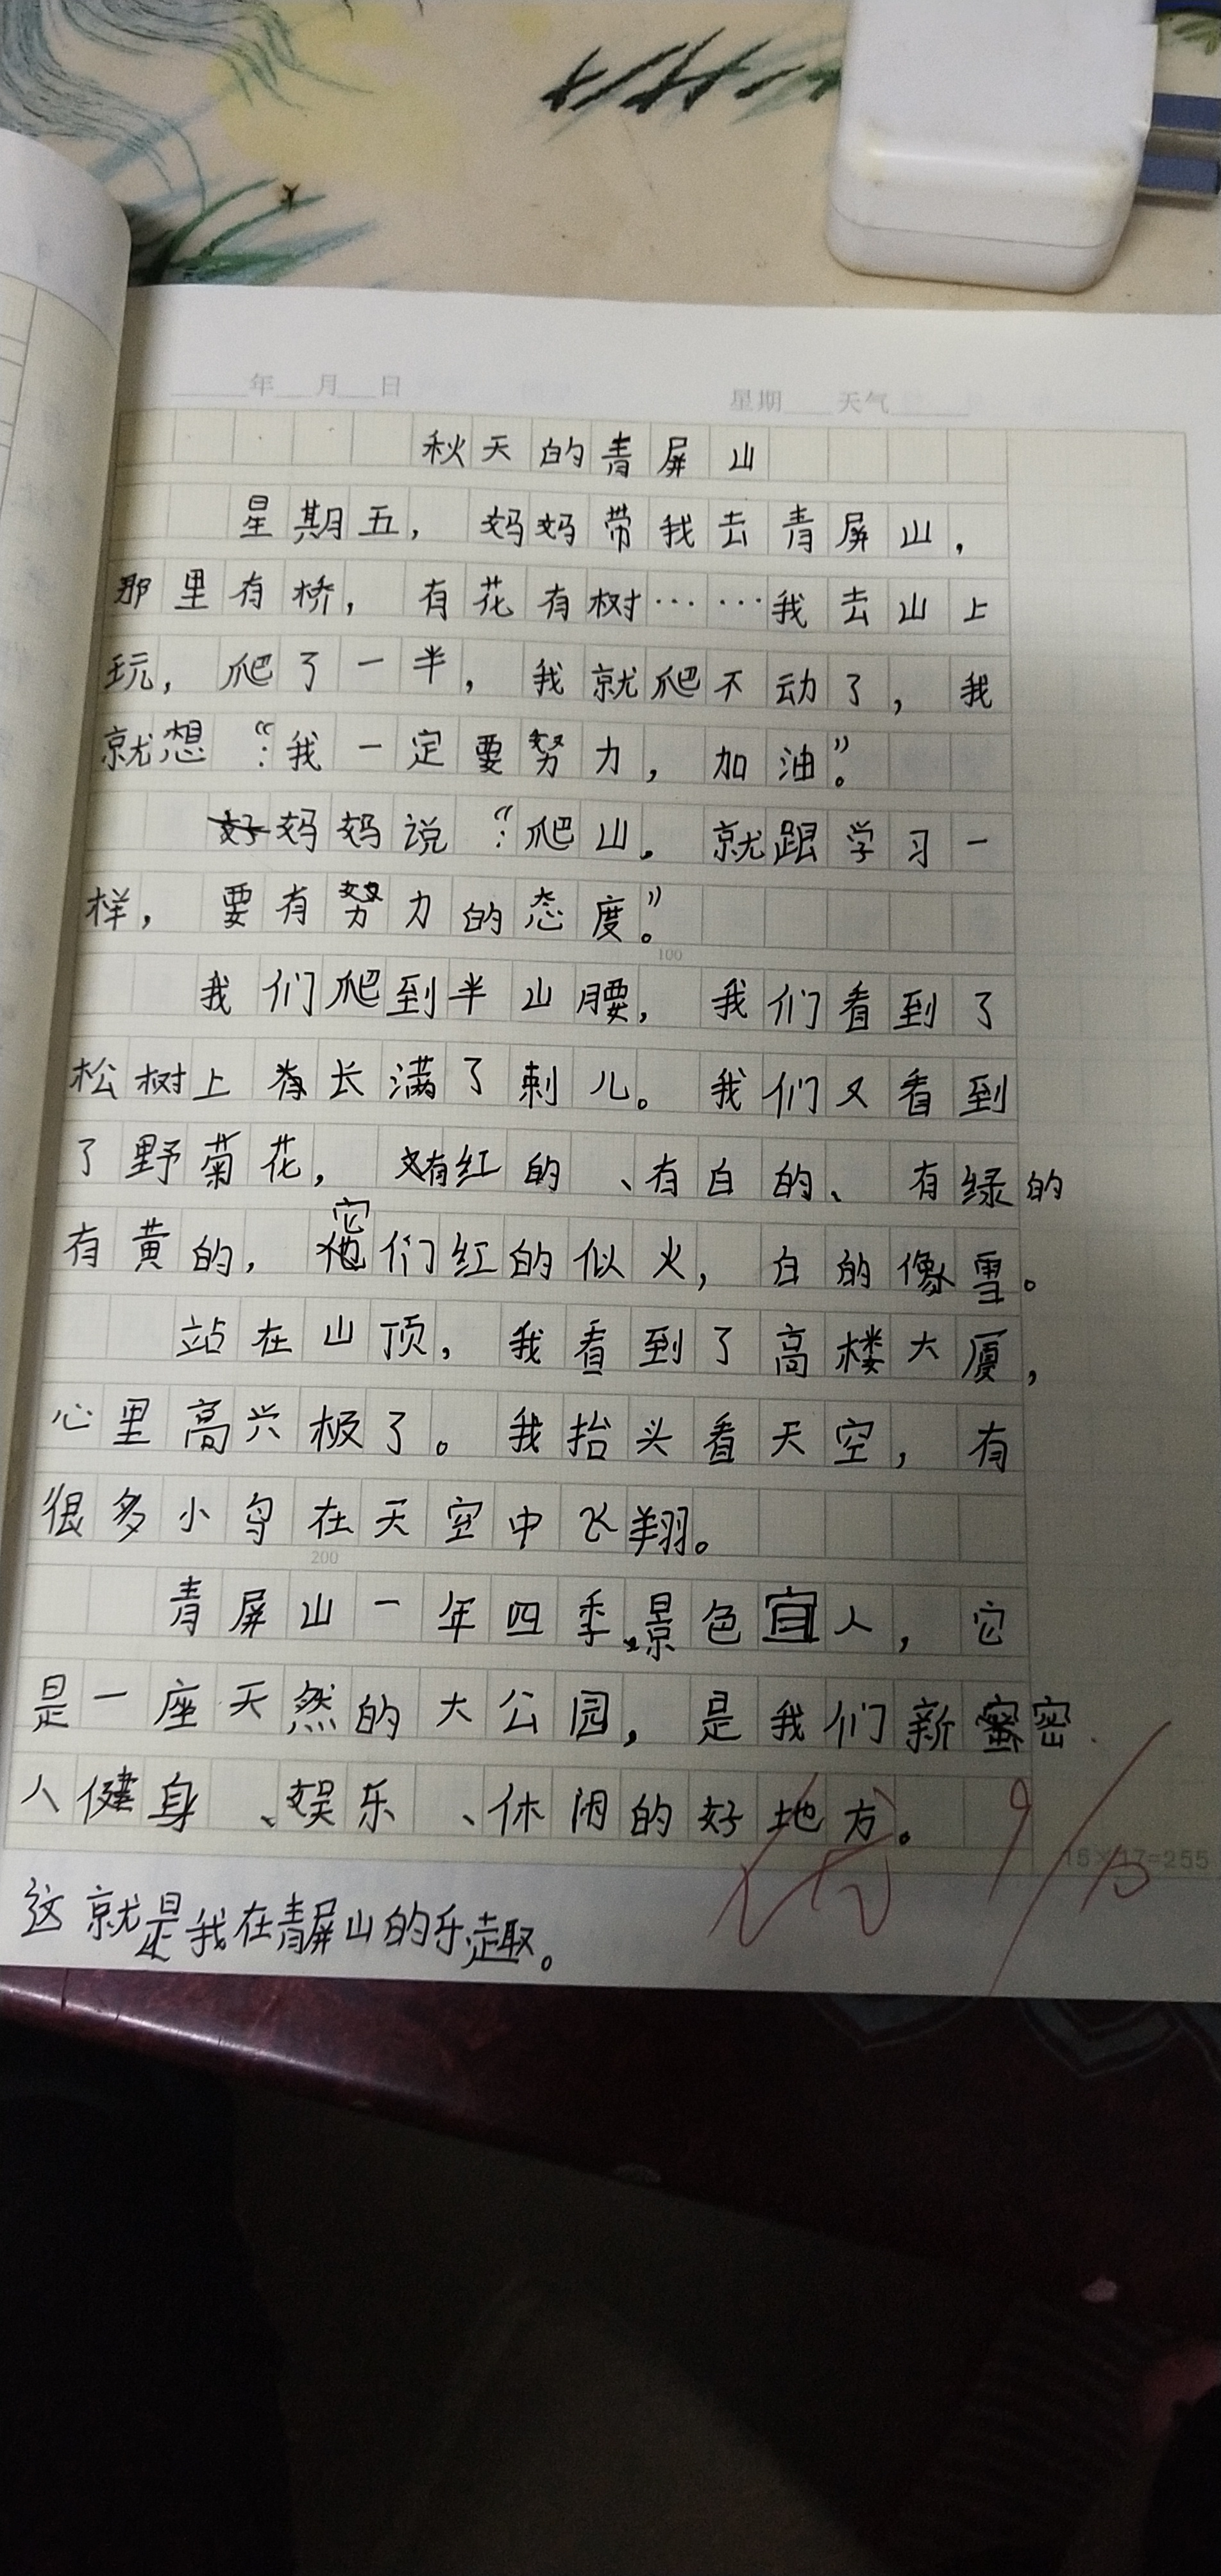 年 月 日 星期 天气
秋天的青屏山
星期五，妈妈带我去青屏山，
那里有桥，有花有树……我去山上
玩，爬了一半，我就爬不动了，我
就想：“我一定要努力，加油”。
妈妈说：“爬山。就跟学习一
样，要有努力的态度。”
100
我们爬到半山腰，我们看到了
松树上有长满了刺儿。我们又看到
了野菊花，有红的、有白的、有绿的
有黄的，它们红的似火，白的像雪。
站在山顶，我看到了高楼大厦，
心里高兴极了。我抬头看天空，有
很多小鸟在天空中飞翔。
200
青屏山一年四季，景色宜人，它
是一座天然的大公园，是我们新密
人健身、娱乐、休闲的好地方。
15×17=255
这就是我在青屏山的乐趣。